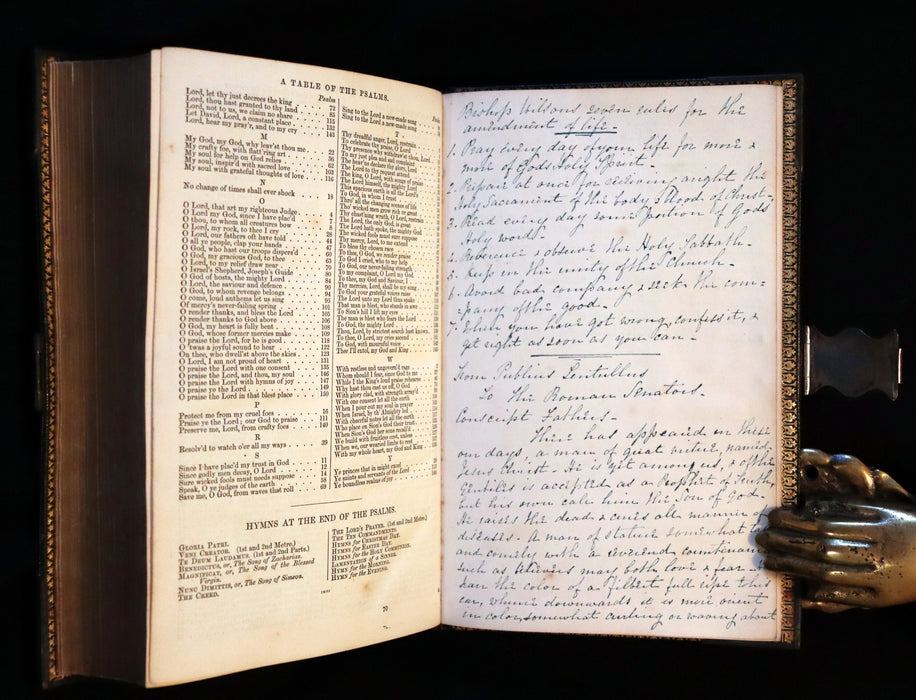 A TABLE OF THE PSALMS.
Psalm
Lord, let thy just decrees the king . . . 72
Lord, thou hast granted to thy land . . . 85
Lord, not to us, we claim no share . . . 115
Let David, Lord, a constant place . . . 132
Lord, hear my pray'r, and to my cry . . . 143
M
My God, my God, why leav'st thou me . . . 22
My crafty foe, with flatt'ring art . . . 36
My soul for help on God relies . . . 62
My soul, inspir'd with sacred love . . . 103
My soul with grateful thoughts of love . . . 116
N
No change of times shall ever shock . . . 18
O
O Lord, that art my righteous Judge . . . 4
O Lord my God, since I have plac'd . . . 7
O thou, to whom all creatures bow . . . 8
O Lord, my rock, to thee I cry . . . 28
O Lord, our fathers oft have told . . . 44
O all ye people, clap your hands . . . 47
O God, who hast our troops dispers'd . . . 60
O God, my gracious God, to thee . . . 63
O Lord, to my relief draw near . . . 70
O Israel's Shepherd, Joseph's Guide . . . 80
O God of hosts, the mighty Lord . . . 84
O Lord, the saviour and defence . . . 90
O God, to whom revenge belongs . . . 94
O come, loud anthems let us sing . . . 95
Of mercy's never-failing spring . . . 101
O render thanks, and bless the Lord . . . 105
O render thanks to God above . . . 106
O God, my heart is fully bent . . . 108
O God, whose former mercies make . . . 109
O praise the Lord, for he is good . . . 118
O 'twas a joyful sound to hear . . . 122
On thee, who dwell'st above the skies . . . 123
O Lord, I am not proud of heart . . . 131
O praise the Lord with one consent . . . 135
O praise the Lord, and thou, my soul . . . 146
O praise the Lord with hymns of joy . . . 147
O praise ye the Lord . . . 149
O praise the Lord in that blest place . . . 150
P
Protect me from my cruel foes . . . 16
Praise ye the Lord; our God to praise . . . 111
Preserve me, Lord, from crafty foes . . . 140
R
Resolv'd to watch o'er all my ways . . . 39
S
Since I have plac'd my trust in God . . . 11
Since godly men decay, O Lord . . . 12
Sure wicked fools must needs suppose . . . 14
Speak, O ye judges of the earth . . . 58
Save me, O God, from waves that roll . . . 69
Sing to the Lord a new-made song
Sing to the Lord a new-made song
T
Thy dreadful anger, Lord, restrain
To celebrate thy praise, O Lord
Thy presence why withdraw'st thou, Lord
To my just plea and sad complaint
The heav'ns declare thy glory, Lord
The Lord to thy request attend
The king, O Lord, with songs of praise
The Lord himself, the mighty Lord
This spacious earth is all the Lord's
To God, in whom I trust
Thro' all the changing scenes of life
Tho' wicked men grow rich or great
Thy chast'ning wrath, O Lord, restrain
The Lord, the only God, is great
The Lord hath spoke, the mighty God
The wicked fools must sure suppose
Thy mercy, Lord, to me extend
To bless thy chosen race
To thee, O God, we render praise
To God I cried, who to help
To God, our never-failing strength
To my complaint, O Lord my God
To thee, my God and Saviour, I
Thy mercies, Lord, shall be my song
To God your grateful voices raise
The Lord unto my Lord thus spake
That man is blest, who stands in awe
To Sion's hill I lift my eyes
The man is blest who fears the Lord
To God, the mighty Lord
Thou, Lord, by strictest search hast known
To thee, O Lord, my cries ascend
To God, with mournful voice
Thee I'll extol, my God and King
W
With restless and ungovern'd rage
Whom should I fear, since God to me
While I the King's loud praise rehearse
Why hast thou cast us off, O God
With glory clad, with strength array'd
With one consent let all the earth
When I pour out my soul in prayer
When Israel, by th' Almighty led
With cheerful notes let all the earth
Who place on Sion's God their trust
When Sion's God her sons recall'd
We build with fruitless cost, unless
When we, our wearied limbs to rest
With my whole heart, my God and King
Y
Ye princes that in might excel
Ye saints and servants of the Lord
Ye boundless realms of joy
HYMNS AT THE END OF THE PSALMS.
GLORIA PATRI.
VENI CREATOR. (1st and 2nd Metre.)
TE DEUM LAUDAMUS. (1st and 2nd Parts.)
BENEDICTUS, or, The Song of Zacharias.
MAGNIFICAT, or, The Song of the Blessed
Virgin.
NUNC DIMITTIS, or, The Song of Simeon.
THE CREED.
THE LORD'S PRAYER. (1st and 2nd Metre.)
THE TEN COMMANDMENTS.
HYMNS for CHRISTMAS DAY.
HYMNS for EASTER DAY.
HYMNS for the HOLY COMMUNION.
LAMENTATION of A SINNER.
HYMN for the MORNING.
HYMN for the EVENING.
70
Bishop Wilsons seven rules for the
amendment of life.-
1. Pray every day of your life for more &
more of Gods Holy Spirit.-
2. Repair at once for receiving aught the
Holy Sacrament of the body & blood of Christ-
3. Read every day some portion of Gods
Holy word.-
4. Reverence & observe the Holy Sabbath.-
5. Keep in the unity of the Church.-
6. Avoid bad company & seek the com=
=pany of the good.-
7. When you have got wrong, confess it, &
get right as soon as you can.-
From Publius Lentullus
To the Roman Senators.
Conscript Fathers-
There has appeared in these
our days, a man of great virtue, named
Jesus Christ - He is yet among us, & of the
Gentiles is accepted as a Prophet of Truth,
but his own call him the Son of God-
He raises the dead & cures all manner of
diseases. A man of stature somewhat
and comely with a reverend countenance
such as believers may both love & fear -
hair the color of a filbert full ripe to his
ear, whence downwards it is more orient
in color, somewhat curling or waving about